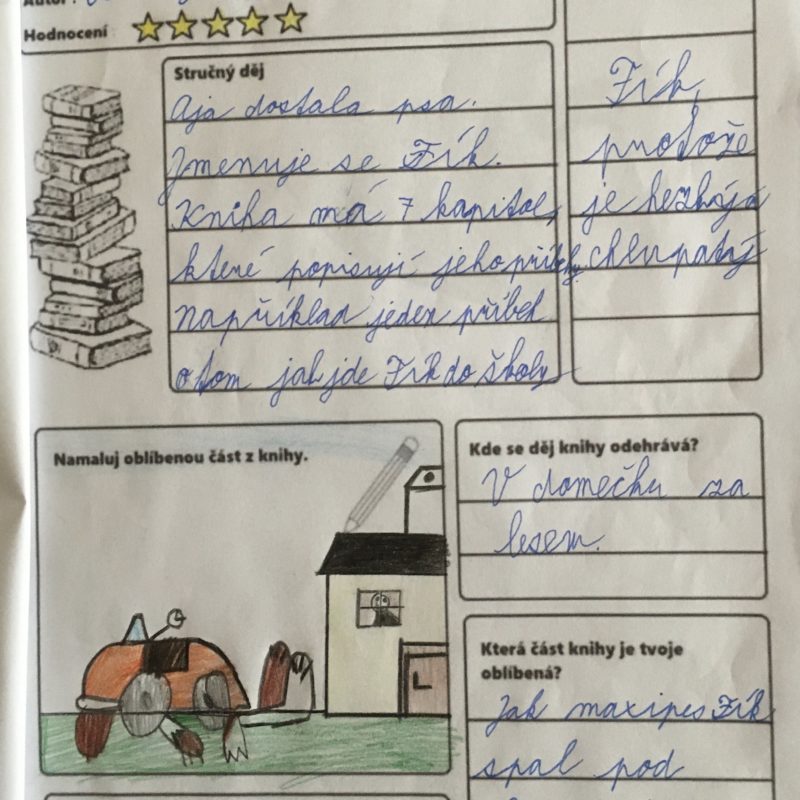 Autor :
Hodnocení
Stručný děj
Aja dostala psa.
Jmenuje se Fík.
Kniha má 7 kapitol,
které popisují jeho příběhy.
například jeden příbeh
o tom jak jde Fík do školy
Fík,
protože
je hezký a
chlupatý
Namaluj oblíbenou část z knihy.
Kde se děj knihy odehrává?
V domečku za
lesem.
Která část knihy je tvoje
oblíbená?
Jak maxipes Fík
spal pod